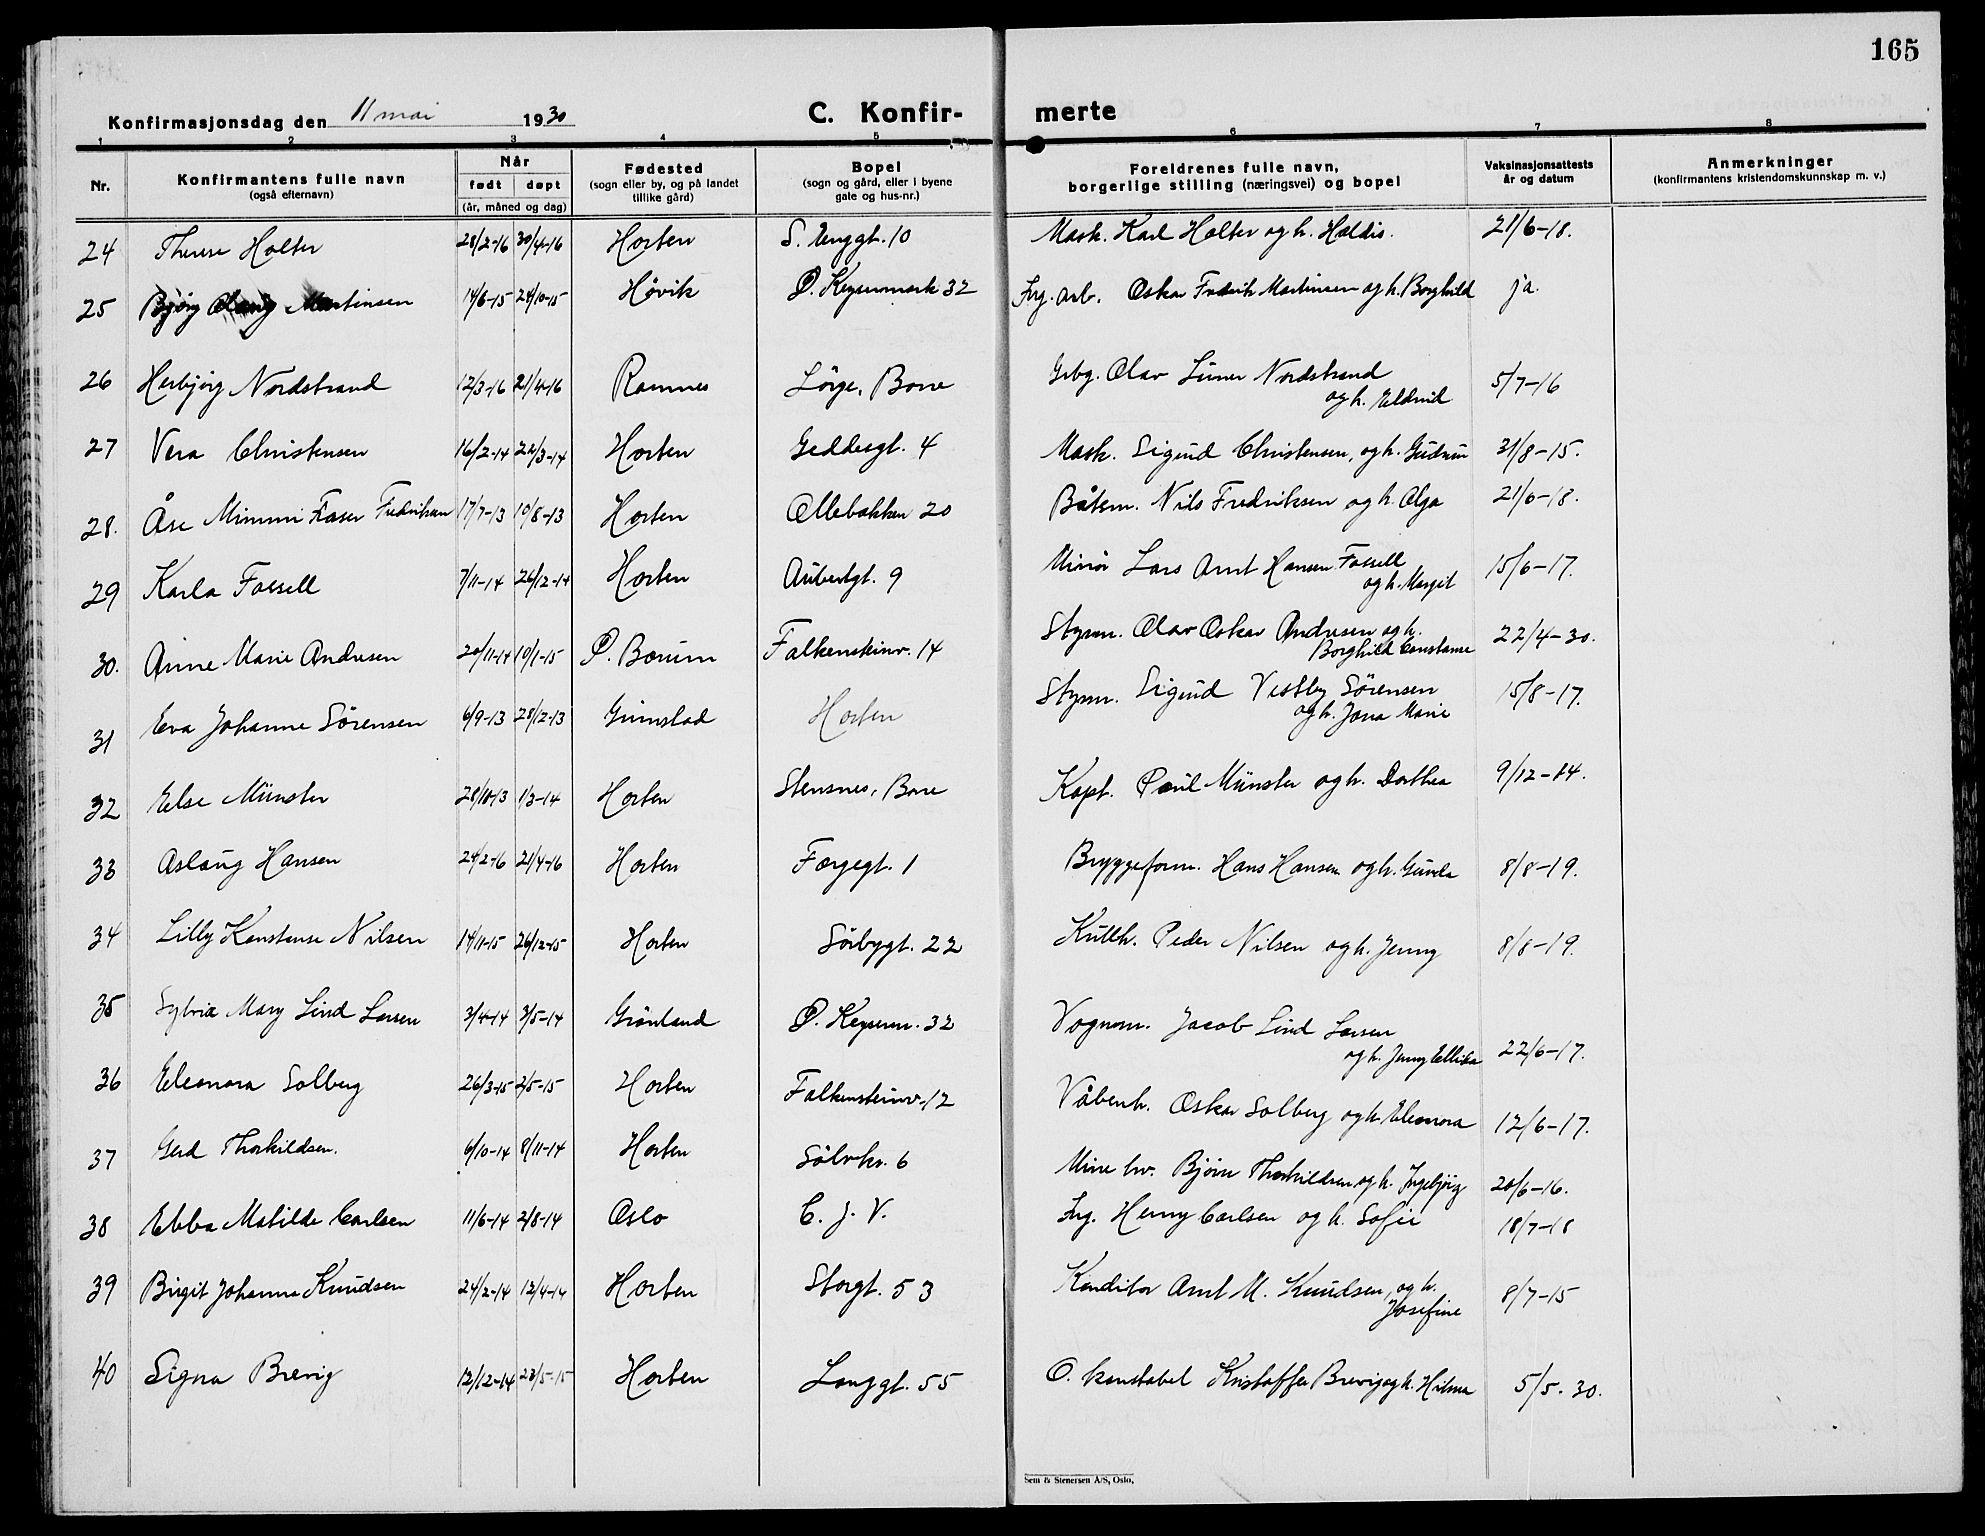 165
Konfirmasjonsdag den 11 mai 1930 C. Konfir- merte
1 2 3 4 5 6 7 8
Nr. Konfirmantens fulle navn (også efternavn) Når født døpt (år, måned og dag) Fødested (sogn eller by, og på landet tillike gård) Bopel (sogn og gård, eller i byene gate og hus-nr.) Foreldrenes fulle navn, borgerlige stilling (næringsvei) og bopel Vaksinasjonsattests år og datum Anmerkninger (konfirmantens kristendomskunnskap m. v.)
24 Therese Holter 28/2-16 30/4-16 Horten S. Enggt. 10 Mask. Karl Holter og h. Haldis. 21/6-18.
25 Bjørg Martinsen 14/6-15 24/10-15 Høvik P. Keysersmark 32 Frg. arb. Oskar Fredrik Martinsen og h. Borghild ja.
26 Herbjørg Nordstrand 12/3-16 21/4-16 Ramnes Lørge, Borre Grbg. Olav Nordstrand og h. Eldrid 5/7-16
27 Vera Christensen 16/2-14 22/3-14 Horten Geddesgt. 4 Mask. Sigurd Christensen, og h. Gudrun 31/8-15.
28. Åse Mimmi Fraser Fredriksen 17/7-13 10/8-13 Horten Ollebakken 20 Båtsm. Nils Fredriksen og h. Olga 21/6-18.
29 Karla Fossell 7/11-14 26/12-14 Horten Aubertgt. 9 Minør Lars Arnt Hansen Fossell og h. Margit 15/6-17.
30. Anne Marie Andresen 20/11-14 10/1-15 P. Borum Falkensteinv. 14 Styrm. Olav Oskar Andresen og h. Borghild Constanse 22/4-30.
31 Eva Johanne Sørensen 6/9-13 28/12-13 Grimstad Horten Styrm. Sigurd Vestby Sørensen og h. Jona Marie 15/8-17.
32 Else Münster 28/10-13 1/3-14 Horten Stensnes, Borre Kapt. Paul Münster og h. Dorthea 9/12-14.
33 Aslaug Hansen 24/2-16 21/4-16 Horten Færgegt. 1 Bryggeform. Hans Hansen og h. Gunda 8/8-19.
34 Lilly Konstanse Nilsen 14/11-15 26/12-15 Horten Sørbygt. 22 Kullh. Peder Nilsen og h. Jenny 8/8-19.
35 Sylvia Mary Lind Larsen 3/4-14 3/5-14 Grønland P. Keyserm. 32 Vognm. Jacob Lind Larsen og h. Jenny Ellida 22/6-17.
36 Eleonora Solberg 26/3-15 2/5-15 Horten Falkensteinv. 12 Våbenh. Oskar Solberg og h. Eleonora 12/6-17.
37 Gerd Thorkildsen. 6/10-14 8/11-14 Horten Sølvkr. 6 Mine hv. Bjørn Thorkildsen og h. Ingebjørg 20/6-16.
38 Ebba Matilde Carlsen 11/6-14 2/8-14 Oslo C. J. V. Frg. Henry Carlsen og h. Sofie 18/7-18
39 Birgit Johanne Knudsen 24/2-14 12/4-14 Horten Storgt. 53 Konditor Arnt M. Knudsen, og h. Josefine 8/7-15
40 Signa Brevig 12/12-14 23/5-15 Horten Langgt. 55 O. konstabel Kristoffer Brevig og h. Hilma 5/5-30.
Sem & Stenersen A/S, Oslo.